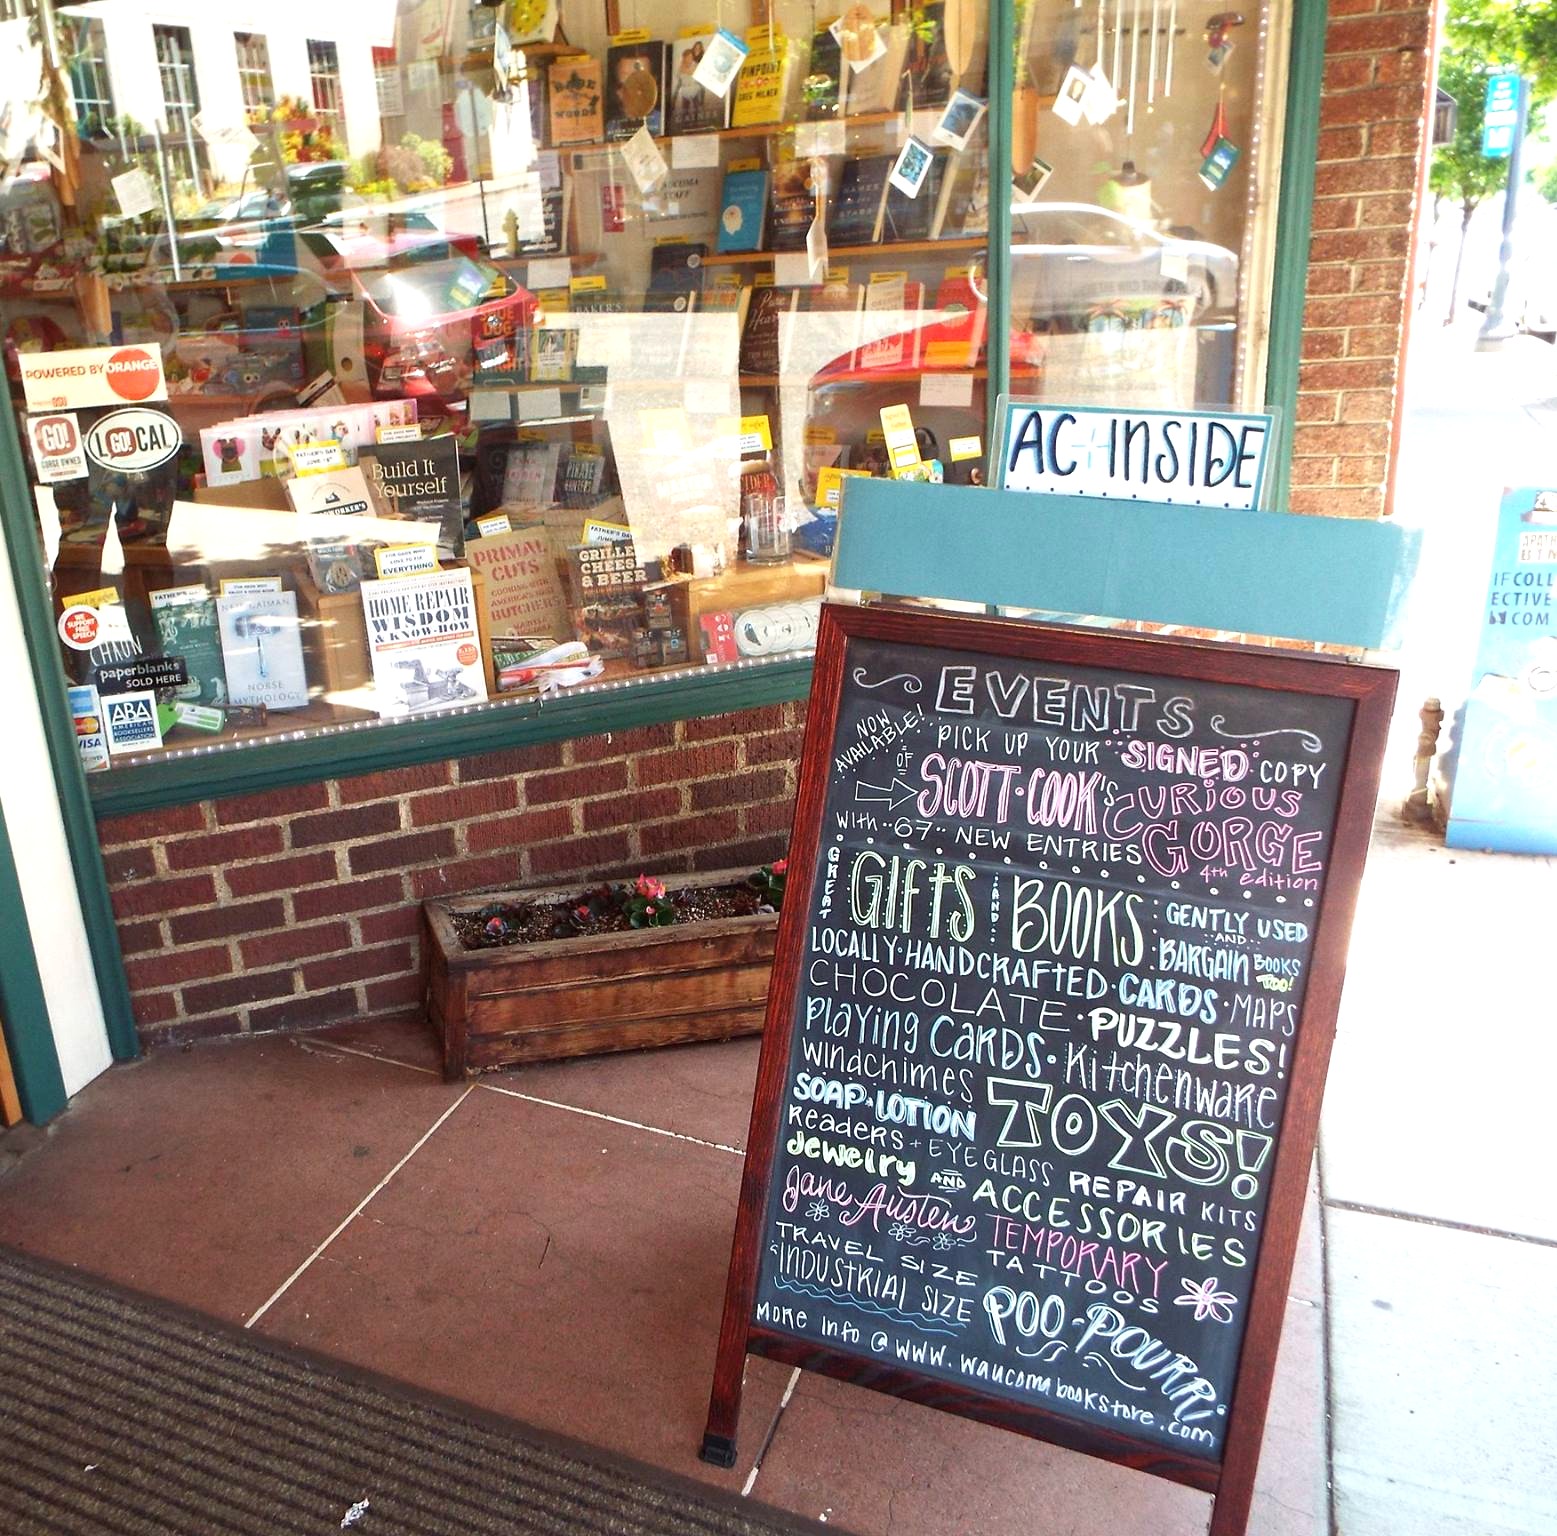 PINPOINT
GREG MILNER
POWERED BY ORANGE
OSU
GO!
GORGE OWNED
LOCAL
GO!
FATHER'S DAY
Build It
Yourself
FOR DADS WHO
LOVE TO FIX
EVERYTHING
HOME REPAIR
WISDOM
& KNOW-HOW
PRIMAL
CUTS
GRILLED
CHEESE
& BEER
NEIL GAIMAN
NORSE
MYTHOLOGY
paperblanks
SOLD HERE
VISA
ABA
AMERICAN
BOOKSELLERS
ASSOCIATION
AC INSIDE
EVENTS
NOW
AVAILABLE!
PICK UP YOUR SIGNED COPY
OF
SCOTT COOK'S CURIOUS
GORGE
4th edition
with 67 NEW ENTRIES
GREAT GIFTS AND BOOKS
GENTLY USED
AND
BARGAIN BOOKS
TOO!
LOCALLY·HANDCRAFTED·CARDS·MAPS
CHOCOLATE·PUZZLES!
Playing CARDS·Kitchenware
windchimes
SOAP·LOTION TOYS!
Readers + EYEGLASS REPAIR KITS
Jewelry AND ACCESSORIES
Jane Austen TEMPORARY
TATTOOS
TRAVEL SIZE
INDUSTRIAL SIZE POO-POURRI
MORE info @ www.waucomabookstore.com
IF COLL
ECTIVE
COM